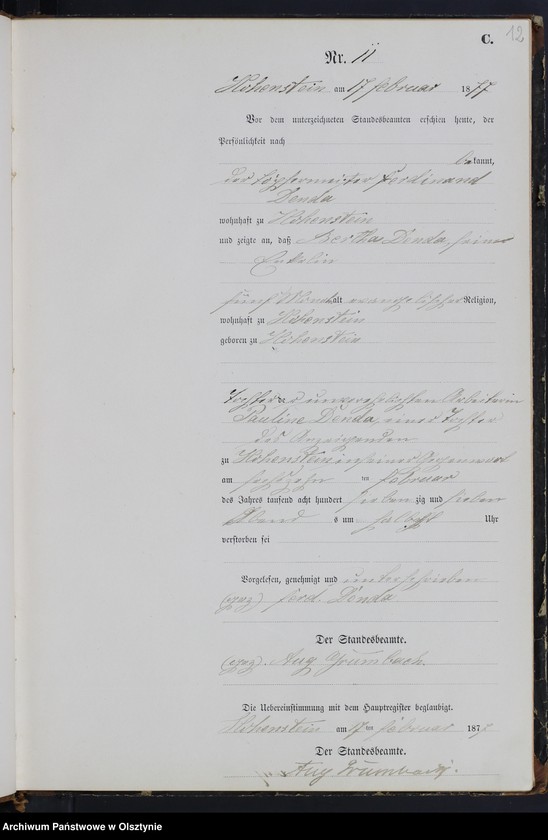 C. 12
Nr. 11
Hohenstein am 17 februar 1877
Vor dem unterzeichneten Standesbeamten erschien heute, der
Persönlichkeit nach
bekannt,
der Töpfermeister Ferdinand
Denda
wohnhaft zu Hohenstein
und zeigte an, daß Bertha Denda, seine
Enkelin
fünf Monat alt evangelischer Religion,
wohnhaft zu Hohenstein
geboren zu Hohenstein
Tochter der unverehelichten Arbeiterin
Pauline Denda, einer Tochter
des Anzeigenden
zu Hohenstein in seiner Gegenwart
am sechszehn ten februar
des Jahres tausend acht hundert sieben zig und sieben
Abend s um halb Uhr
verstorben sei
Vorgelesen, genehmigt und unterschrieben
(gez) ferd. Denda
Der Standesbeamte.
(gez). Aug Grumbach.
Die Uebereinstimmung mit dem Hauptregister beglaubigt.
Hohenstein am 17 ten februar 1877
Der Standesbeamte.
Aug Grumbach.
Archiwum Państwowe w Olsztynie